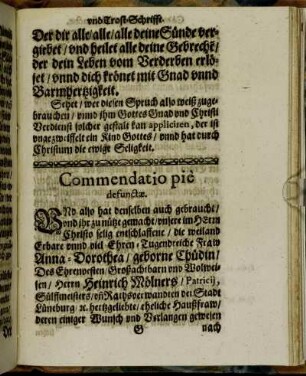 vnd Trost-Schrifft.
Der dir alle/alle/alle deine Sünde ver-
gibet/ vnd heilet alle deine Gebrech/
der dein Leben vom Verderben erlö-
set/ vnnd dich krönet mit Gnad vnnd
Barmhertzigkeit.
Sehet/ wer diesen Spruch also weiß zuge-
brauchen/ vnnd ihm Gottes Gnad vnd Christi
Verdienst solcher gestalt kan appliciren, der ist
vngezweiffelt ein Kind Gottes/ vnnd hat durch
Christum die ewige Seligkeit.
Commendatio piè
defunctæ.
VNd also hat denselben auch gebraucht/
vnd ihr zu nütze gemacht/ vnsere im HErrn
Christo selig entschlaffene/ die weiland
Erbare vnnd viel Ehren-Tugendreiche Fraw
Anna-Dorothea/ geborne Chüdin/
Des Ehrenvesten/ Großachtbarn vnd Wolwei-
sen/ Herrn Heinrich Mölners/ Patricij,
Sülffmeisters/ vñ Rathsverwandten der Stadt
Lüneburg ꝛc. hertzgeliebte/ eheliche Haußfraw/
deren einiger Wunsch vnd Verlangen gewesen
G nach